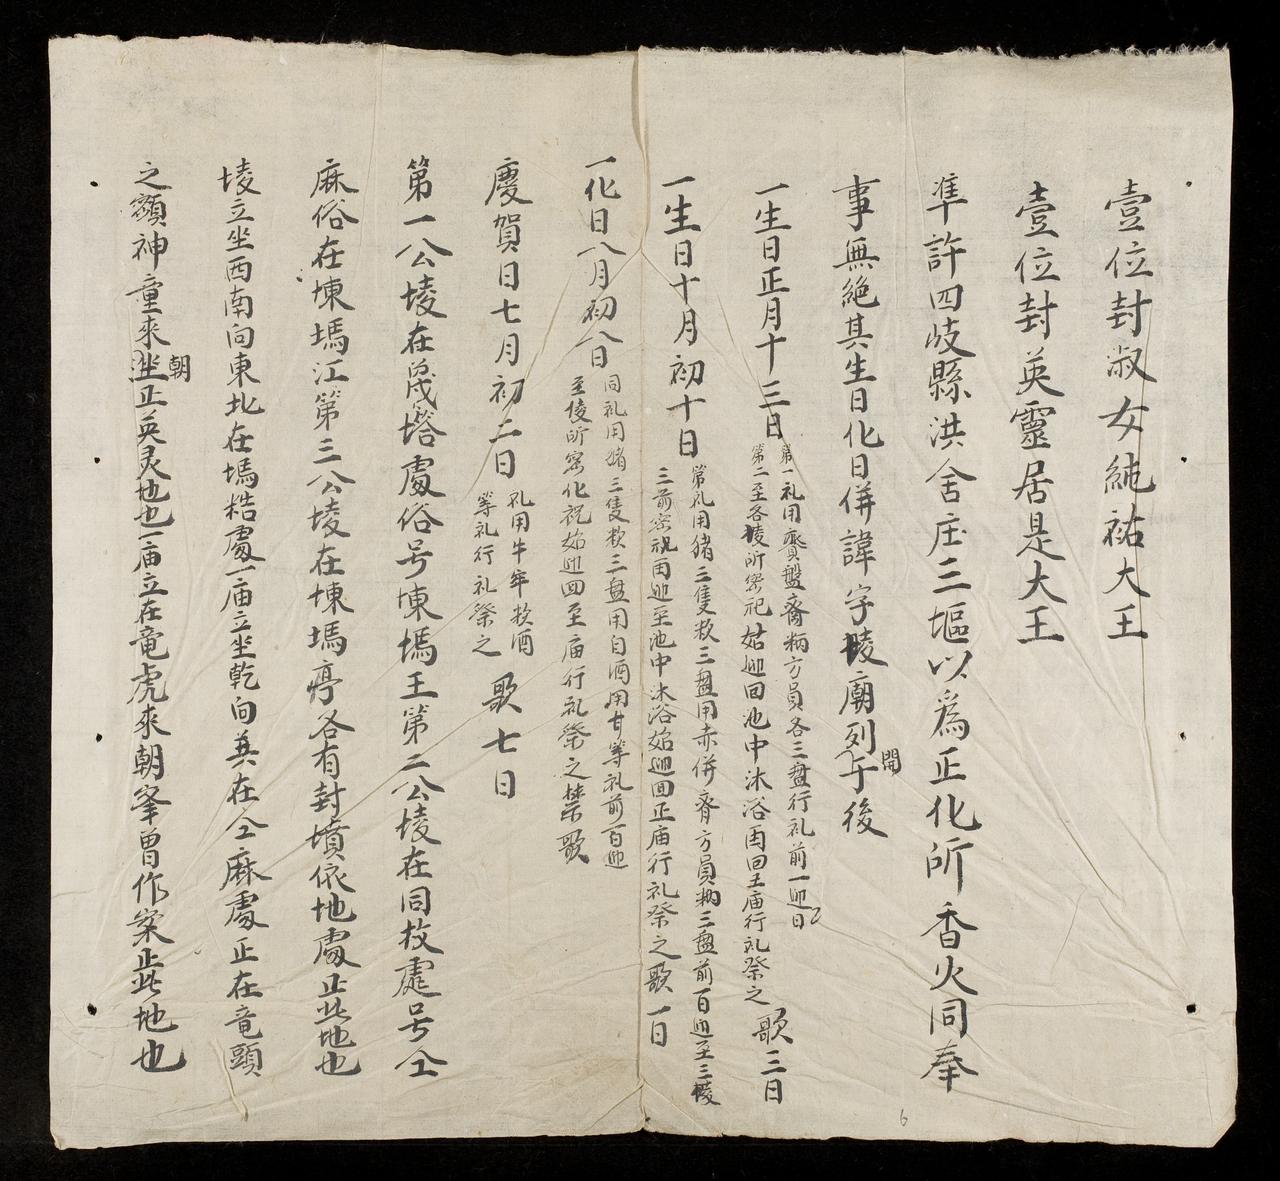 壹位封淑女純祐大王
壹位封英靈居是大王
準許四岐縣洪舍庄三塸以爲正化所香火同奉
事無絶其生日化日併諱字𨻫廟列開于後
一生日正月十三日
第一礼用齋盤齋粫方員各三盘行礼前一迎日
第二至各𨻫所宻祀始迎回池中沐浴再回王庙行礼祭之
歌三日
一生日十月初十日
第礼用猪三隻𥹯三盘用赤併齊方員粫三盘前百迎至三𨻫
三前宻祝再迎至池中沐浴始迎回正庙行礼祭之歌一日
一化日八月初八日
同礼用猪三隻𥹯三盘用白酒用甘等礼前百迎
至𨻫所宻化祝始迎回至庙行礼祭之禁歌
慶賀日七月初二日
礼用牛牢𥹯酒
等礼行礼祭之
歌七日
第一公堎在處俗号埬塢王第二公堎在同枚處号仝
麻俗在埬塢江第三公堎在埬塢亭各有封墳依地處止此地也
堎立坐西南向東北在塢䊝處一庙立坐乾向巽在仝麻處正在竜頭
之額神童來朝坐正英灵也也一庙立在竜虎來朝峯曾作案止此地也
6